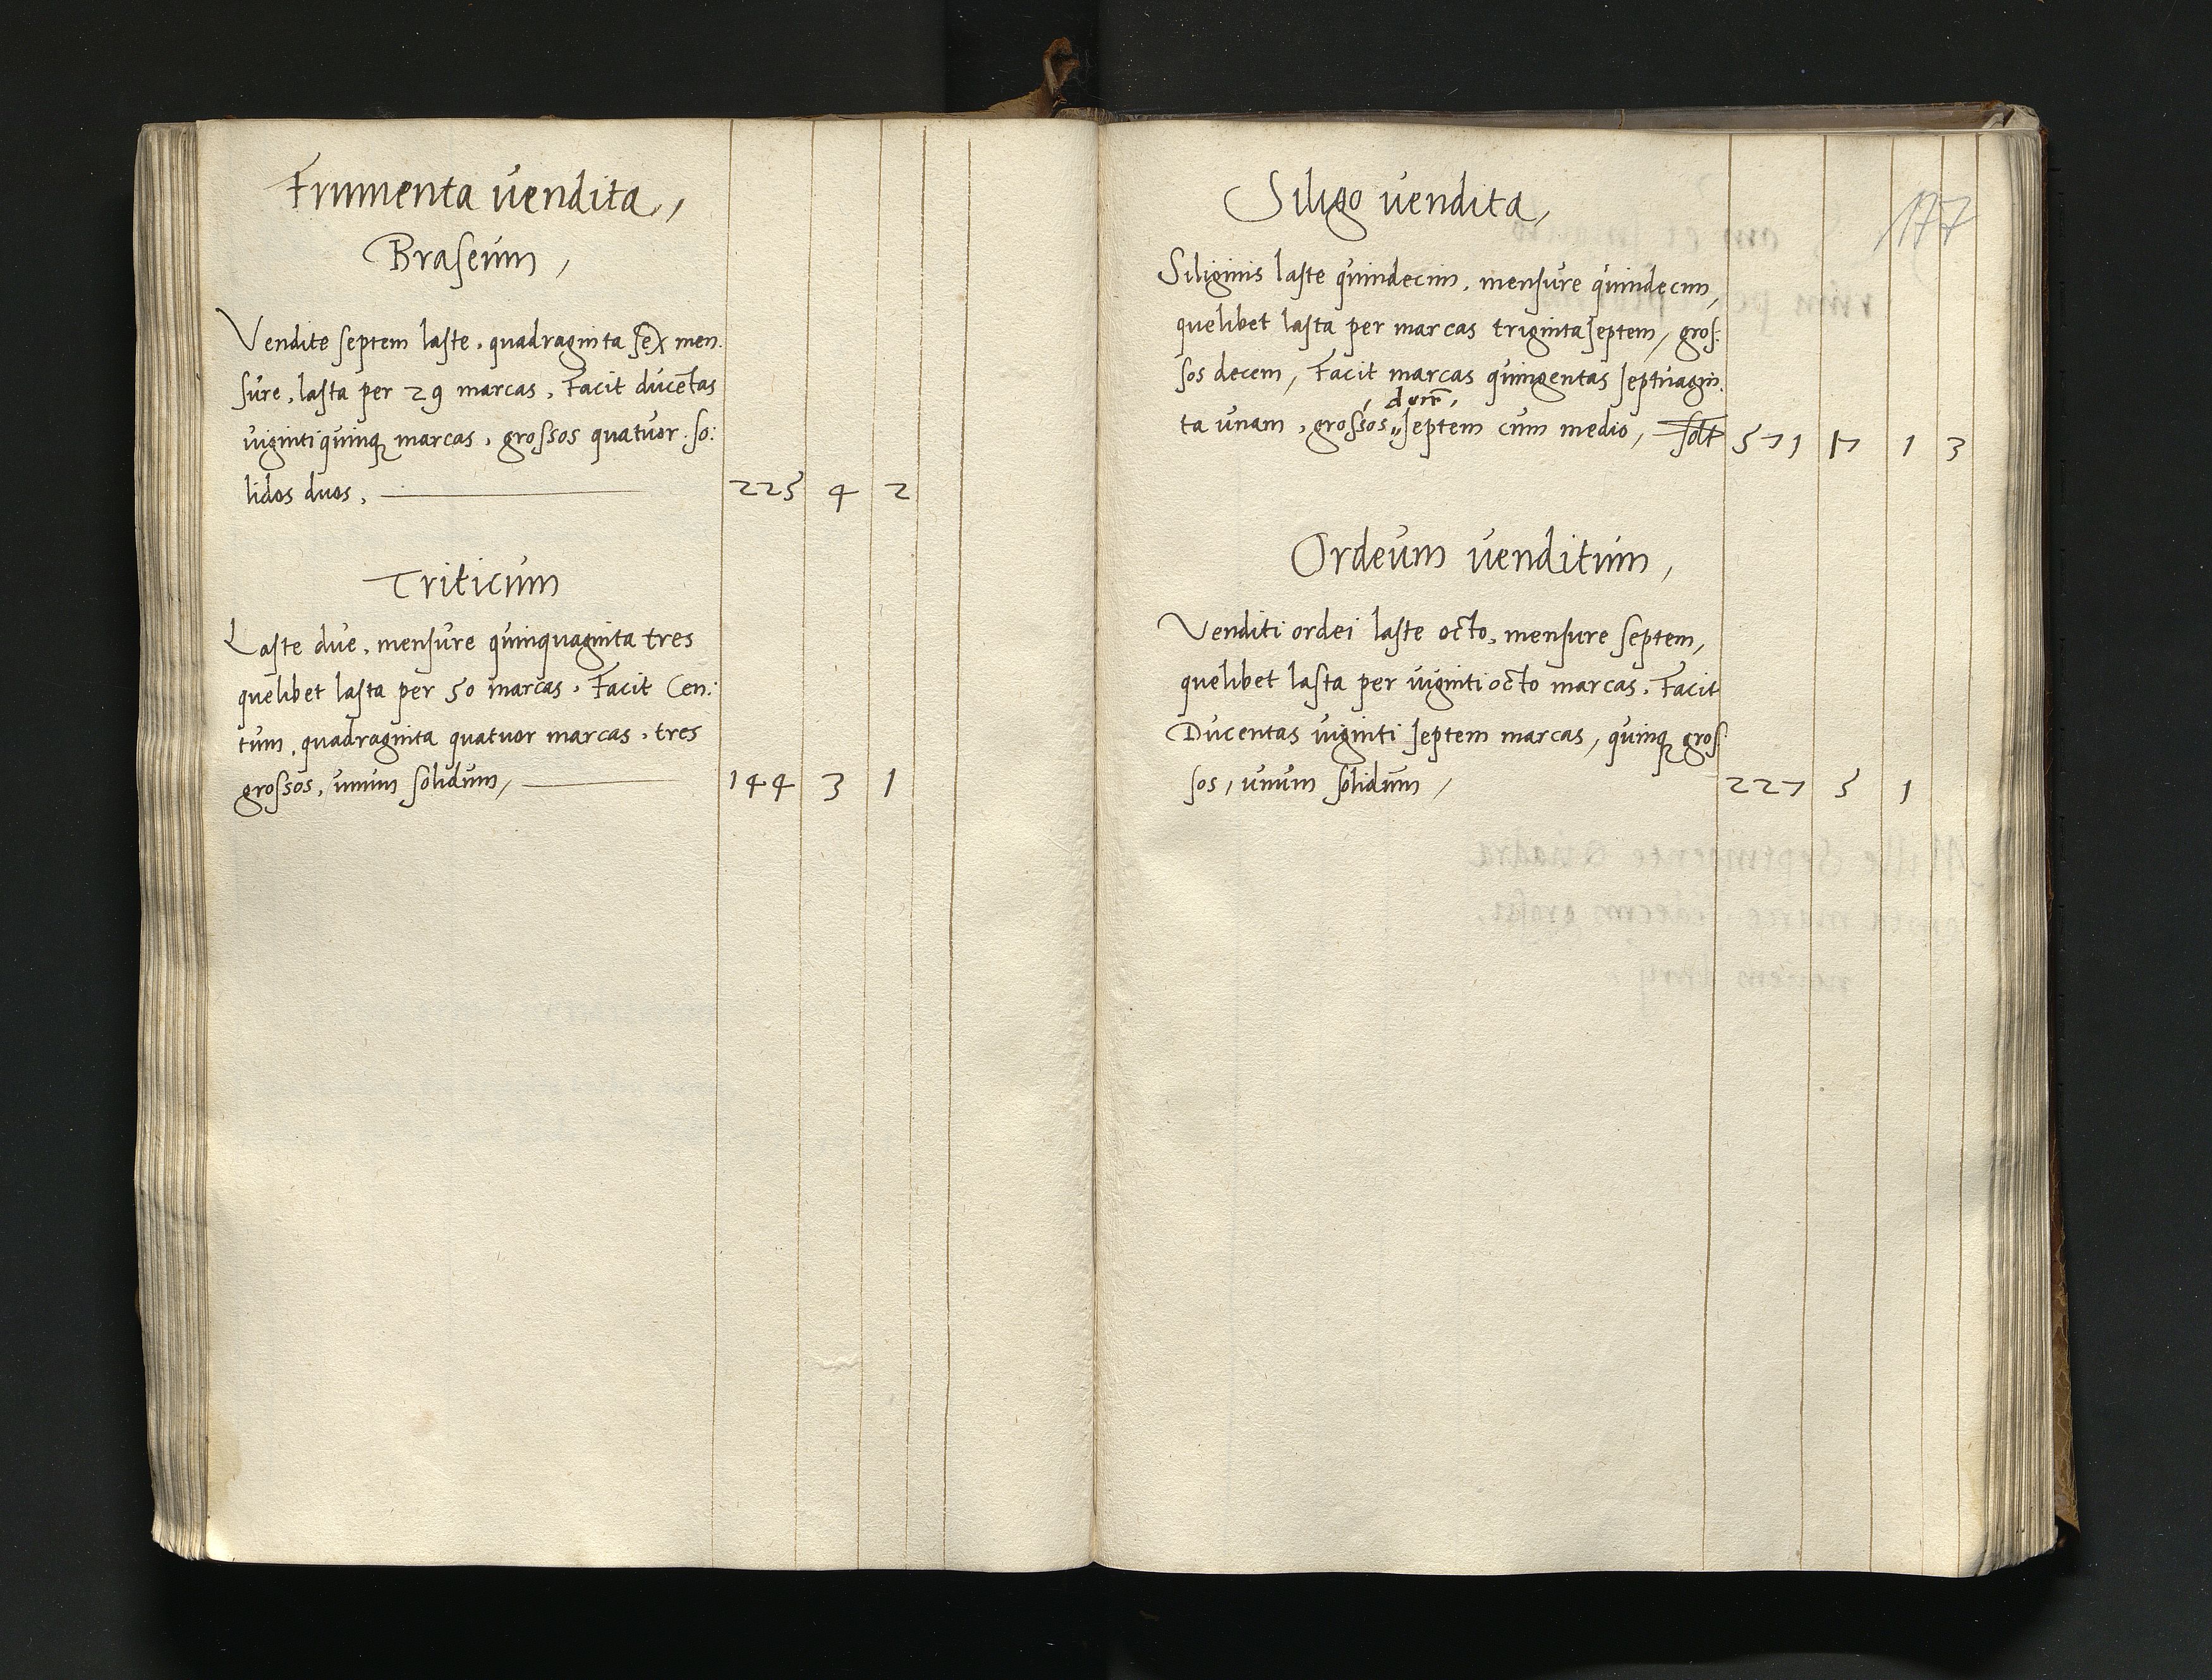 Frumenta vendita,
Braseum,
Vendite septem laste, quadraginta sex men:
sure, lasta per 29 marcas, Facit ducetas
viginti quinq marcas, grossos quatuor so:
lidos duos, 225 4 2
Triticum
Laste due, mensure quinquaginta tres
quelibet lasta per 50 marcas, Facit Cen:
tum, quadraginta quatuor marcas, tres
grossos, unum solidum, 144 3 1
177
Siligo vendita,
Siliginis laste quindecim, mensure quindecim,
quelibet lasta per marcas triginta septem, gros:
sos decem, Facit marcas quingentas septuagin:
ta unam, grossos septem cum medio, 571 17 1 3
Ordeum venditum,
Venditi ordei laste octo, mensure septem,
quelibet lasta per viginti octo marcas, Facit
Ducentas viginti septem marcas, quinq gros
sos, unum solidum, 227 5 1